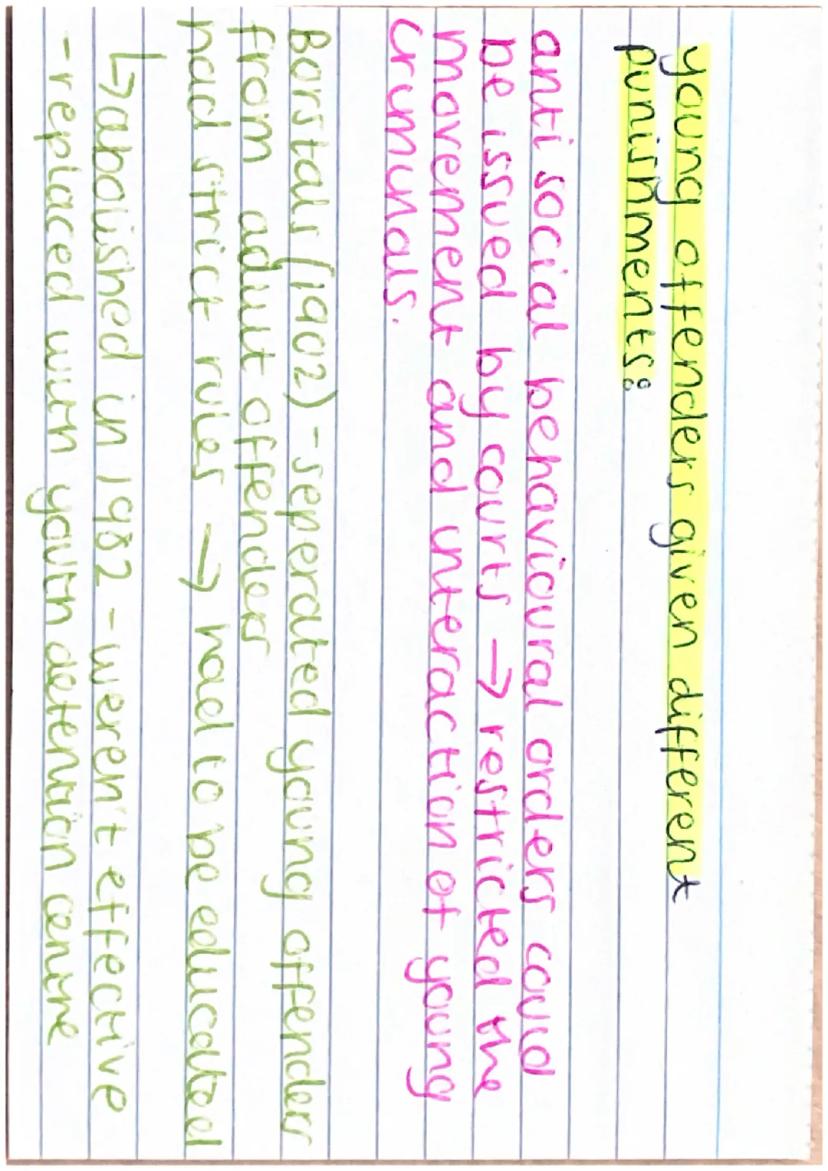 young offenders given different
punishments:
anti social behavioural orders could
be issued by courts → restricted the
movement and interaction of young
criminals.
Borstals (1902) - seperated young offenders
from adult offenders
had strict rules → had to be educated
↳ abolished in 1982 - weren't effective
- replaced with youth detention centre